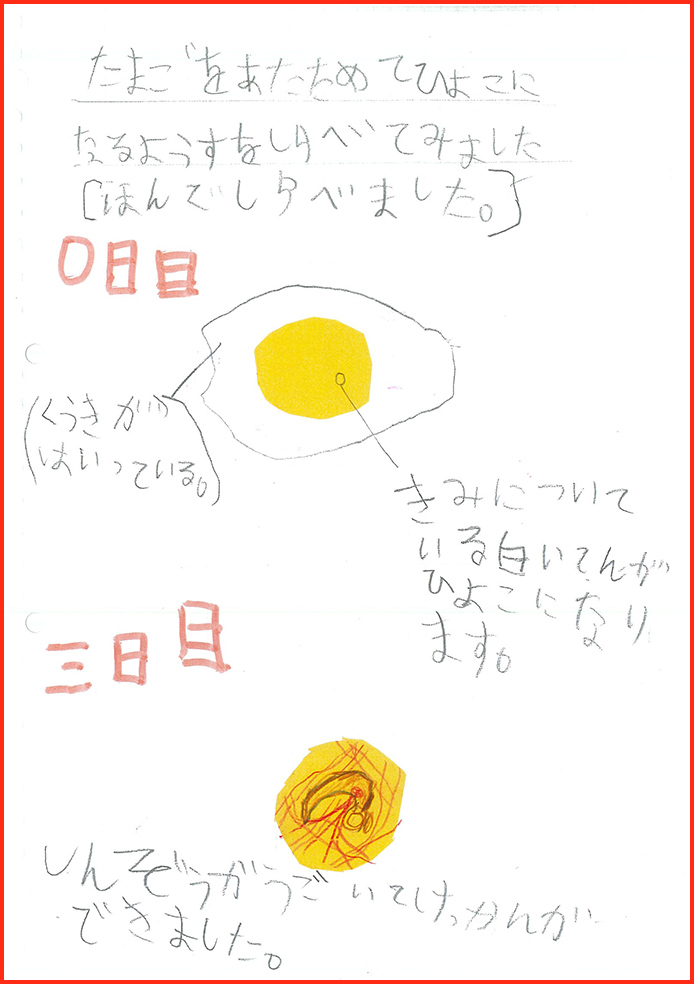 たまごをあたためてひよこに
なるようすをしらべてみました
[ほんでしらべました。]
0日目
(くうきが
はいっている。)
きみについて
いる白いてんが
ひよこになり
ます。
三日目
しんぞうがうごいてけっかんが
できました。